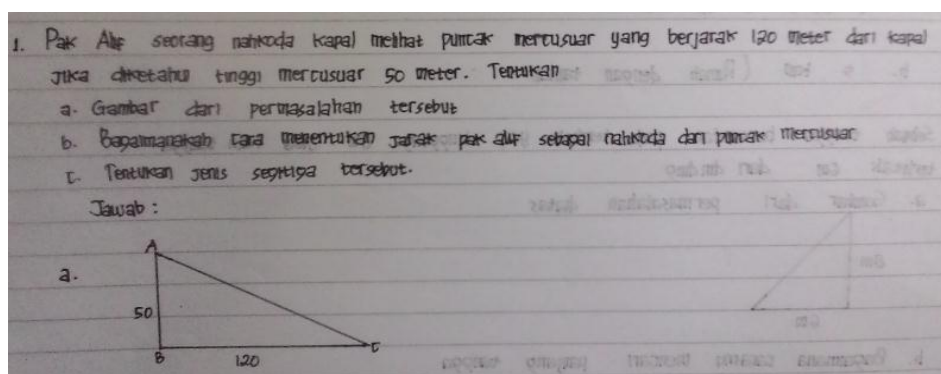 1. Pak Alif seorang nahkoda kapal melihat puncak mercusuar yang berjarak 120 meter dari kapal
Jika diketahui tinggi mercusuar 50 meter. Tentukan
a. Gambar dari permasalahan tersebut
b. Bagaimanakah cara menentukan jarak pak alif sebagai nahkoda dari puncak mercusuar
c. Tentukan jenis segitiga tersebut.
Jawab :
a.
A
50
B 120 C